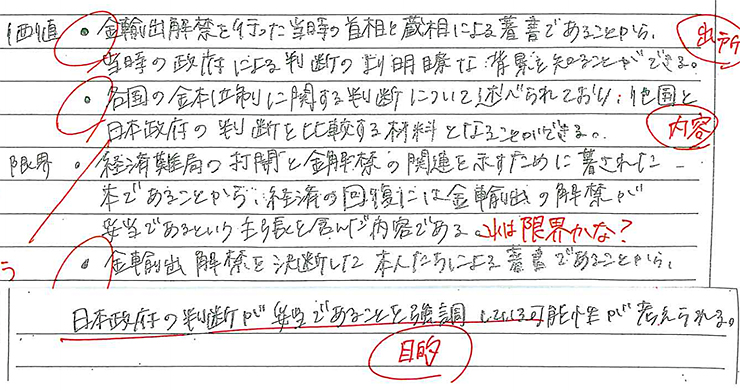 価値 • 金輸出解禁を行った当時の首相と蔵相による著書であることから、 出所
当時の政府による判断のより明瞭な背景を知ることができる。
• 各国の金本位制に関する判断について述べられており、他国と
日本政府の判断を比較する材料となることができる。 内容
限界 • 経済難局の打開と金解禁の関連を示すために著された
本であることから、経済の回復には金輸出の解禁が
妥当であるという主張を含んだ内容である。これは限界かな?
• 金輸出解禁を決断した本人たちによる著書であることから、
日本政府の判断が妥当であることを強調している可能性が考えられる。
目的